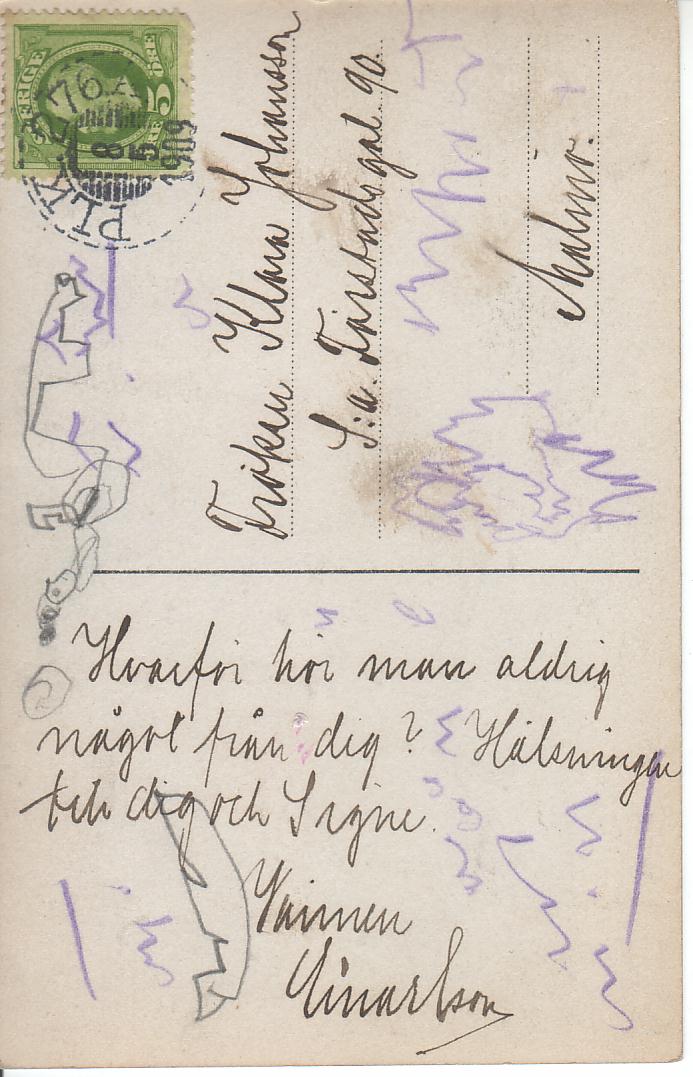 SVERIGE
5
PLK
76 A
8
5
1909
Fröken Klara Johansson
S:a. Förstadsgat. 90.
Malmö.
Hvarför hör man aldrig
något från dig? Hälsningen
till dig och Signe.
Einarsson